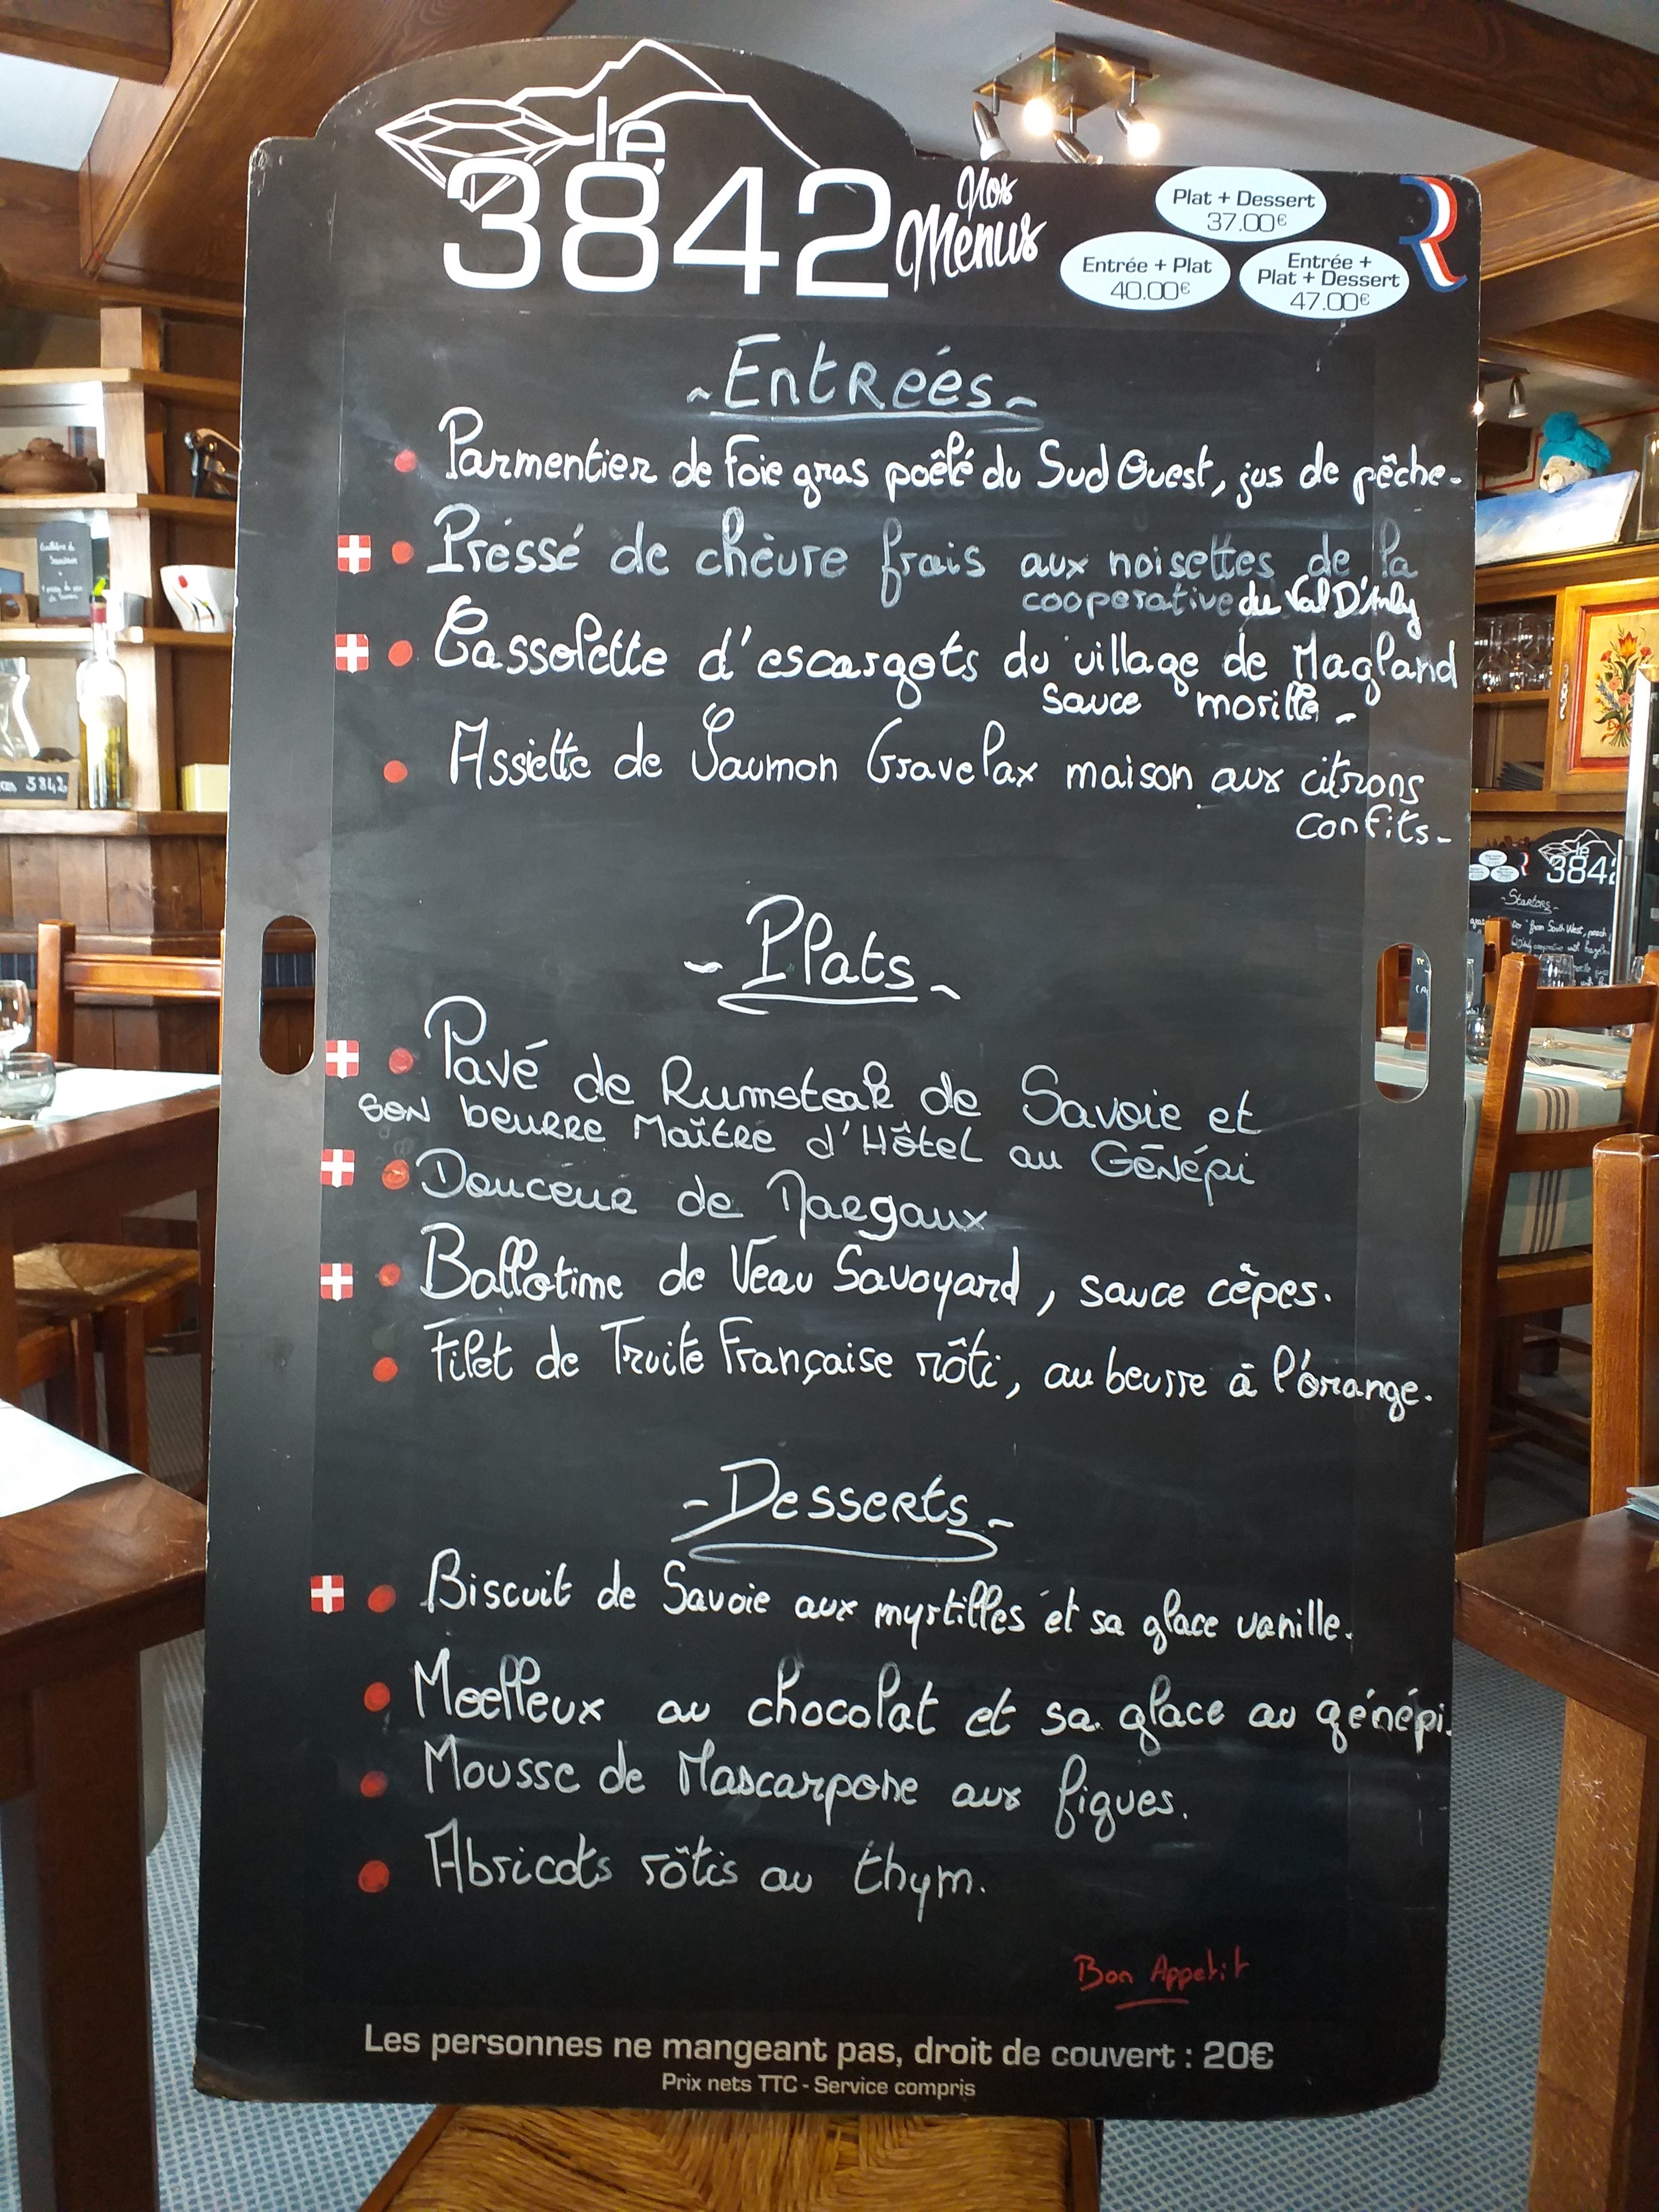 le
3842
Nos
Menus
Plat + Dessert
37.00€
Entrée + Plat
40.00€
Entrée +
Plat + Dessert
47.00€
~ Entreés ~
Parmentier de foie gras poêlé du Sud Ouest, jus de pêche.
Préssé de chèvre frais aux noisettes de la
cooperative du Val D'Arly
Cassolette d'escargots du village de Magland
sauce morille -
Assiette de Saumon Gravelax maison aux citrons
confits -
- Plats -
Pavé de Rumsteak de Savoie et
son beurre Maître d'Hôtel au Génépi
Douceur de Margaux
Ballotine de Veau Savoyard, sauce cêpes.
Filet de Truite Française rôti, au beurre à l'orange.
- Desserts -
Biscuit de Savoie aux myrtilles et sa glace vanille.
Moelleux au chocolat et sa glace au génépi.
Mousse de Mascarpone aux figues.
Abricots rôtis au thym.
Bon Appetit
Les personnes ne mangeant pas, droit de couvert : 20€
Prix nets TTC - Service compris
3842
le
3842
- Starters -
from South West, peach